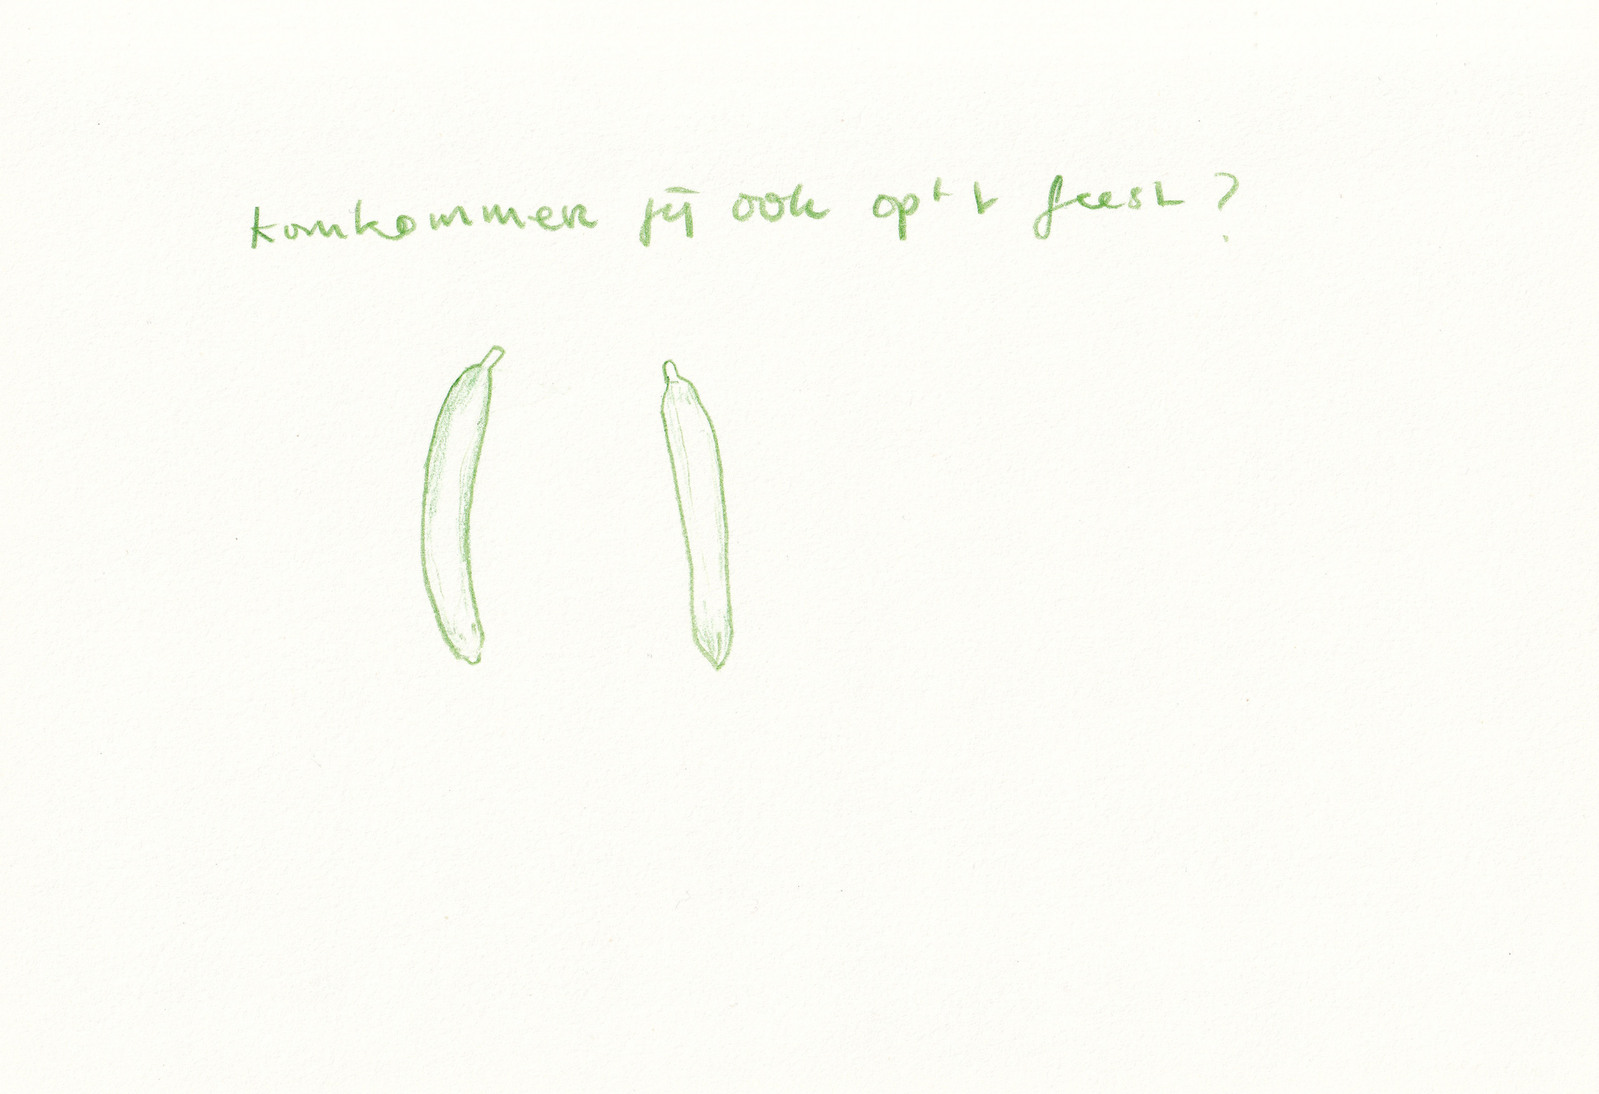 komkommer jij ook op't feest?